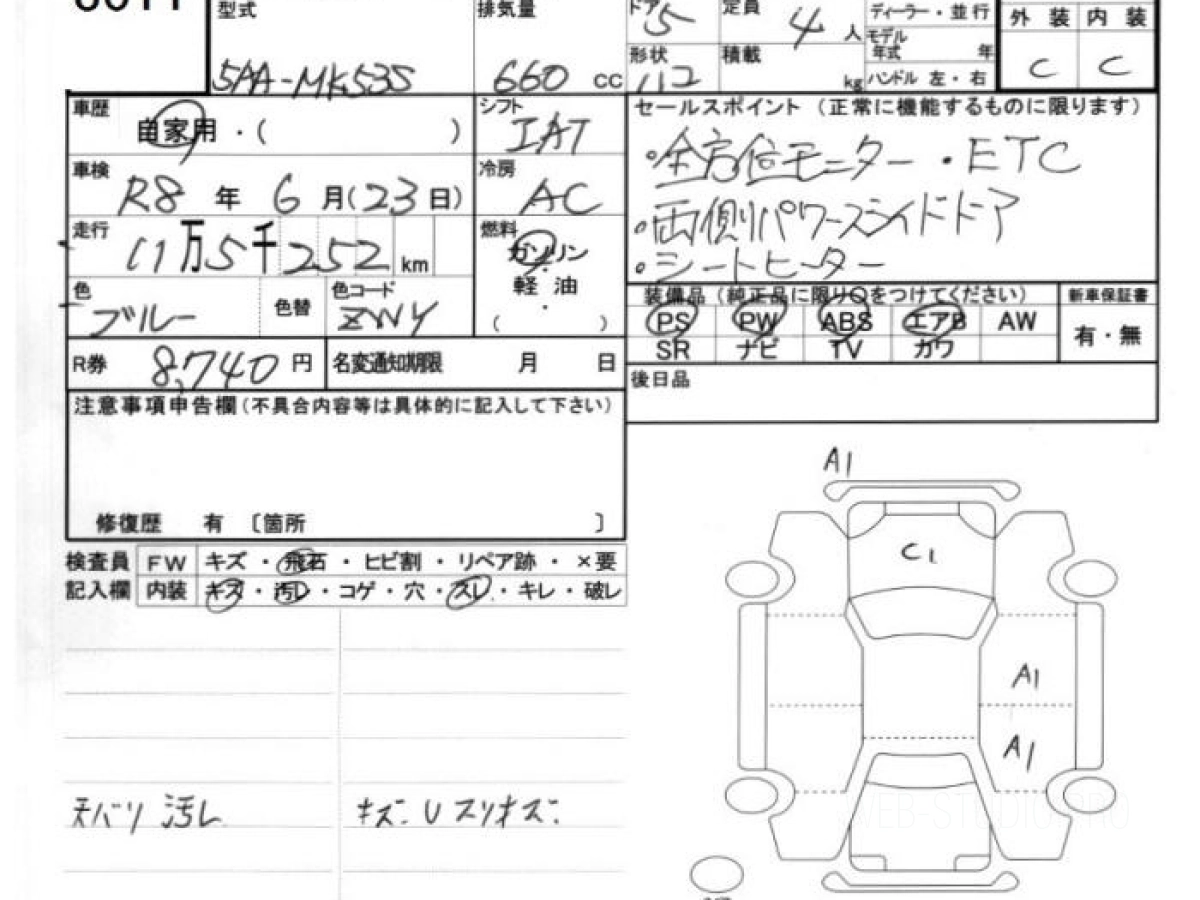 型式
5AA-MK53S
排気量
660 cc
ドア
5
定員
4人
形状
積載
kg
ディーラー・並行
モデル年式 年
ハンドル 左・右
外装 内装
C C
車歴
自家用 ・ ( )
車検
R8年 6月(23日)
走行
11万5千252 km
色
ブルー
色替
色コード
ZWY
シフト
IAT
冷房
AC
燃料
ガソリン
軽油
・
( )
セールスポイント (正常に機能するものに限ります)
・全方位モニター ・ETC
・両側パワースライドドア
・シートヒーター
装備品 (純正品に限り○をつけてください)
PS PW ABS エアB AW
SR ナビ TV カワ
新車保証書
有・無
R券 8,740 円
名変通知期限 月 日
後日品
注意事項申告欄 (不具合内容等は具体的に記入して下さい)
修復歴 有 〔箇所 〕
検査員記入欄
FW キズ ・ 飛石 ・ ヒビ割 ・ リペア跡 ・ ×要
内装 キズ ・ 汚レ ・ コゲ ・ 穴 ・ スレ ・ キレ ・ 破レ
天バリ 汚レ
キズ. Uスリキズ.
A1
C1
A1
A1
WEB-STUDIO.PRO